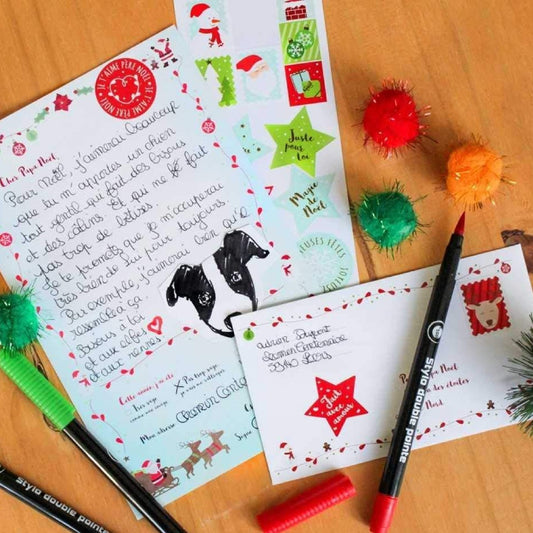 JE T'AIME PÈRE NOËL
JE T'AIME PÈRE NOËL
Cher Papa Noël,
Pour Noël, j'aimerai beaucoup
que tu m'apportes un chien
tout gentil qui fait des bisous
et des câlins. Et qui ne fait
pas trop de bêtises.
Je te promets que je m'occuperai
très bien de lui pour toujours
Par exemple, j'aimerai bien qu'il
ressemble à ça
Bisous à toi
et aux elfes
et aux rennes
Cette année j'ai été
Très sage
comme une image
X Pas trop sage
Mon adresse
Chemin
Juste
pour toi
Magie de
Noël
JOYEUSES FÊTES
adrian Dupont
Chemin Centenaire
Noël
des étoiles
Nord
Fait
avec
amour
Stylo double pointe
Stylo double pointe